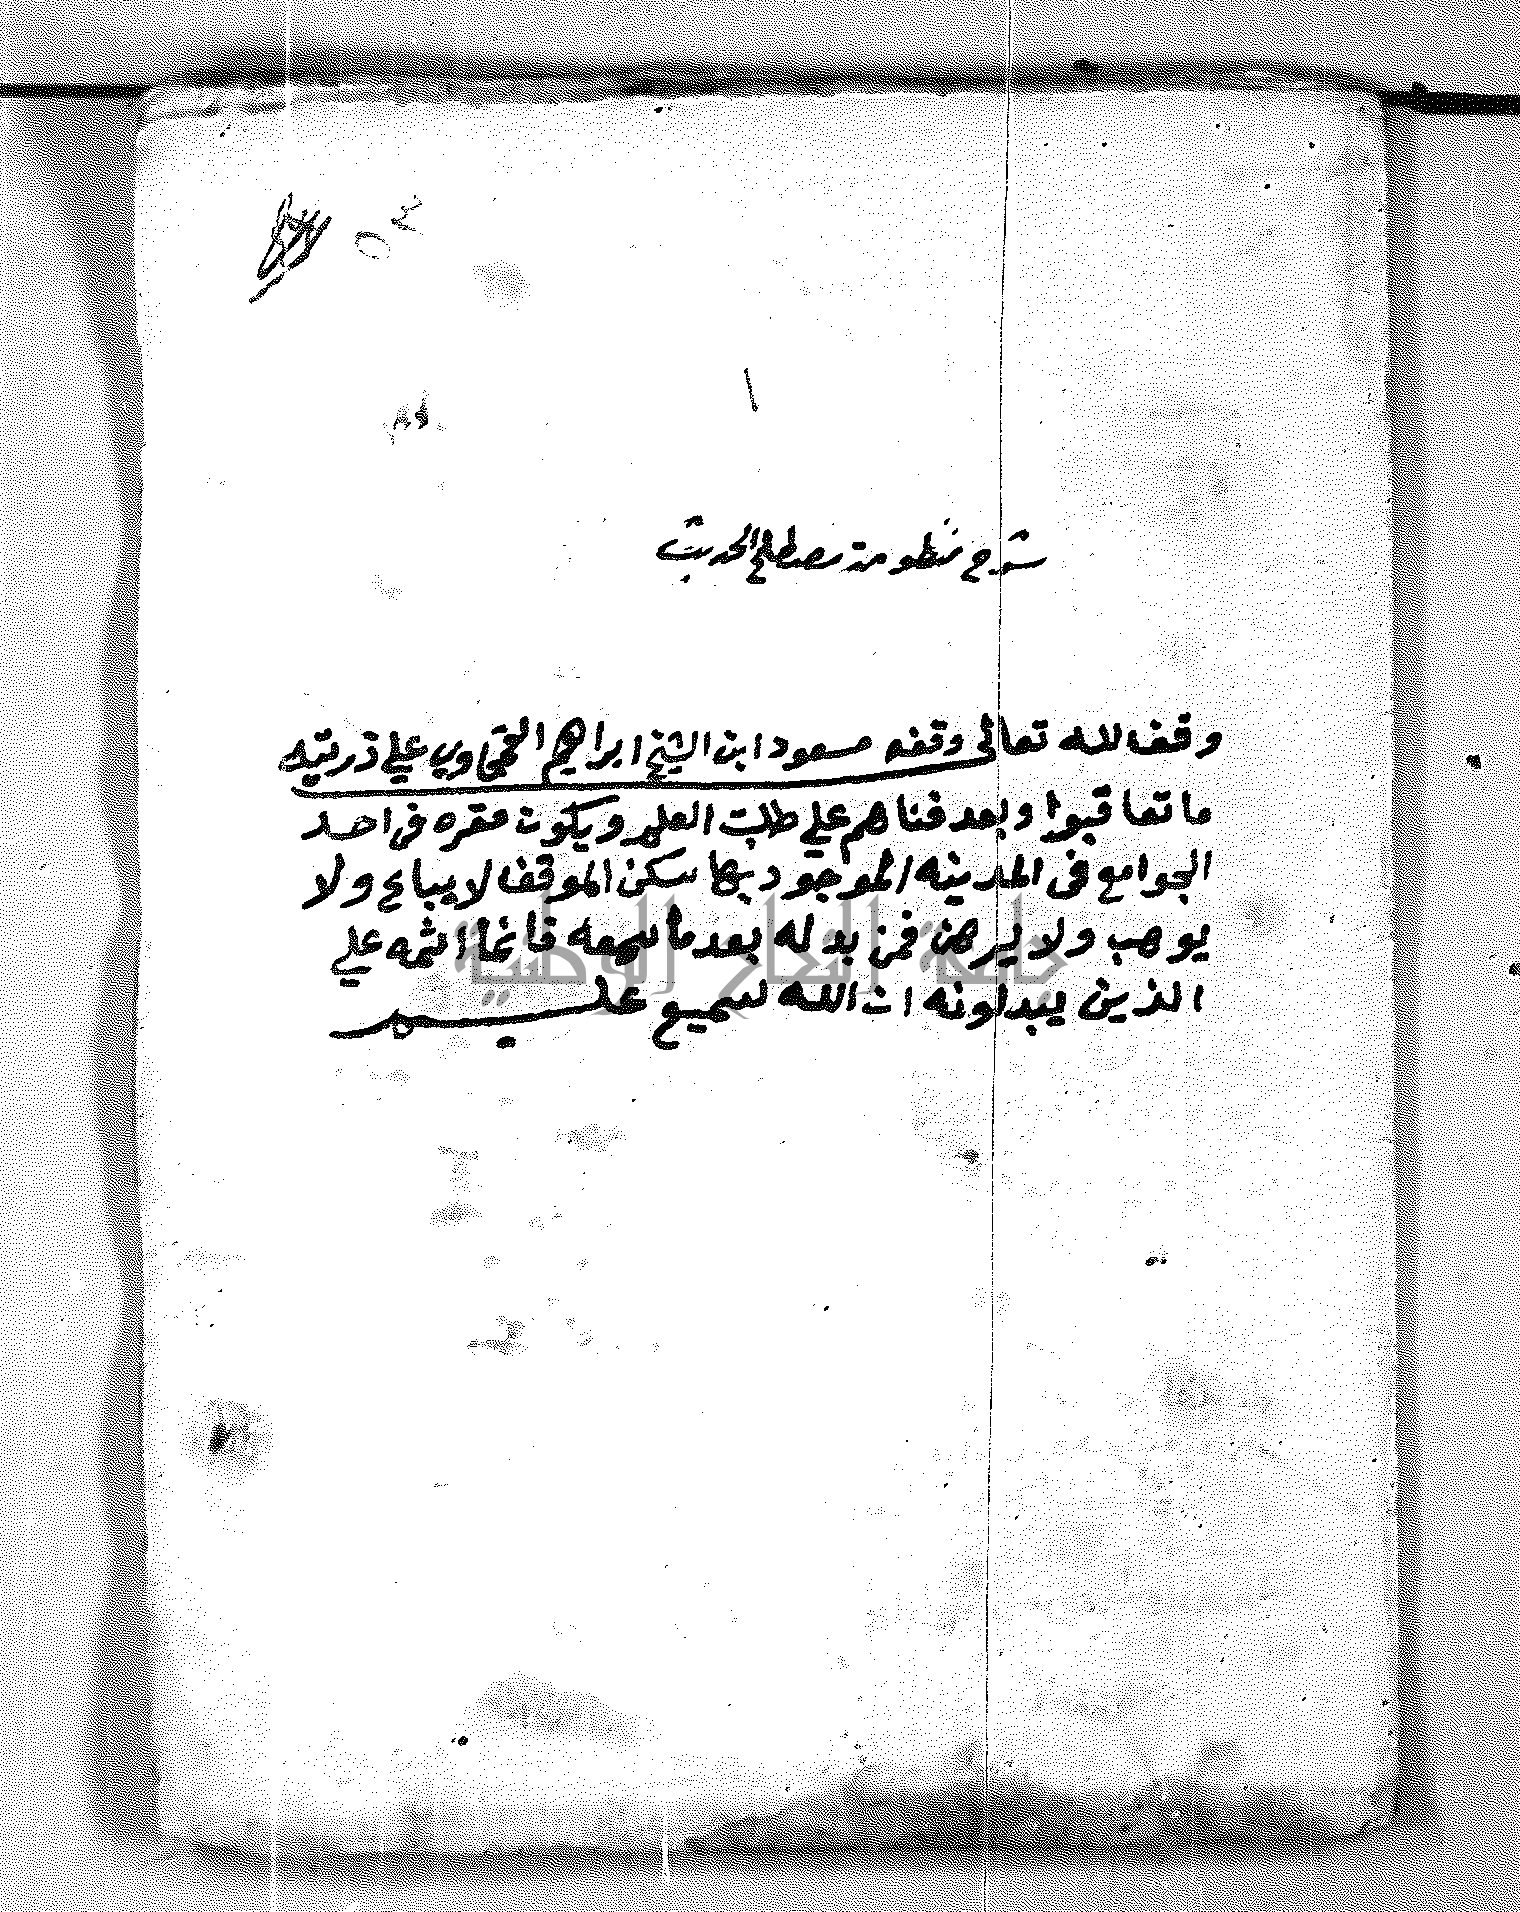 ٥٢
١
شرح منظومة مصطلح الحديث
وقف لله تعالى وقفه مسعود ابن الشيخ ابراهيم القمحاوي علي ذريته
ما تعاقبوا وبعد فناهم علي طلبت العلم ويكون مقره في احد
الجوامع في المدينه الموجود بها سكن الموقف لا يباع ولا
يوهب ولا يرهن فمن بدله بعد ما سمعه فانما اثمه علي
الذين يبدلونه ان الله لسميع عليم
جامعة النجاح الوطنية